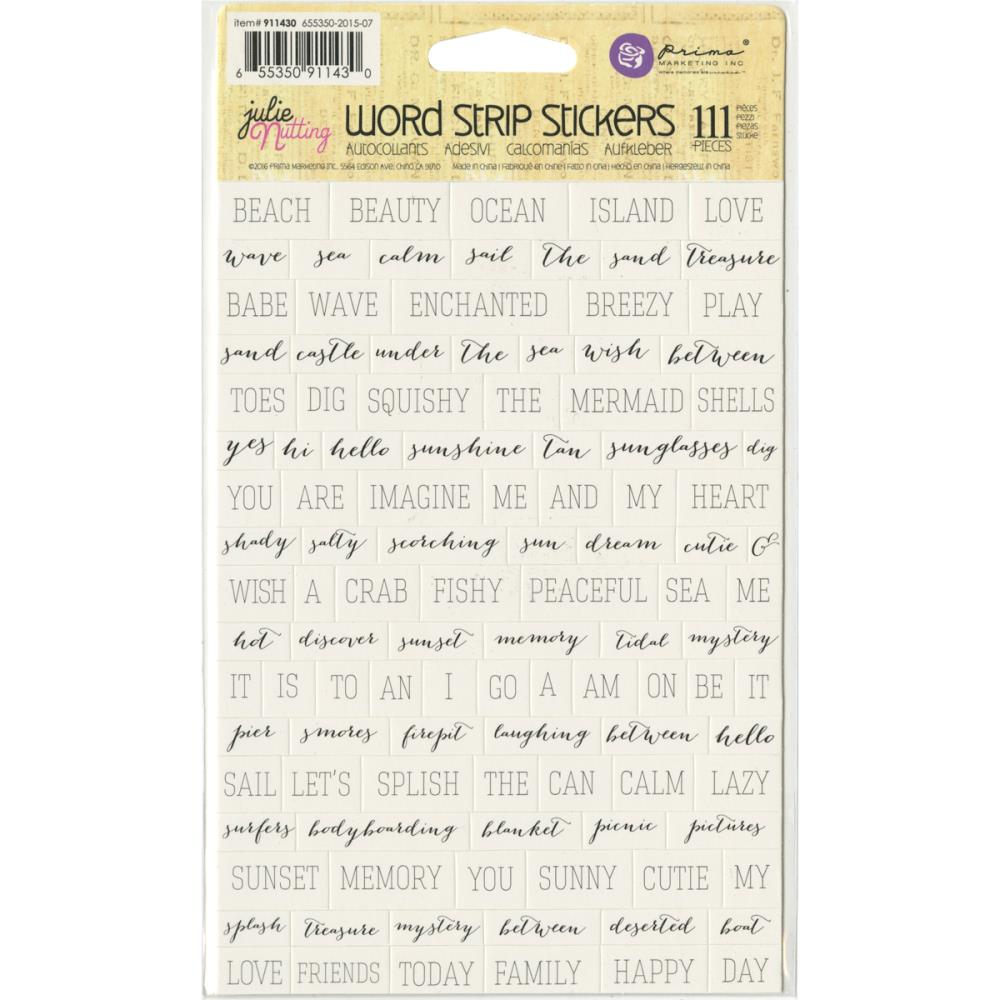 item# 911430 655350-2015-07
6 55350 91143 0
Prima®
MARKETING INC
julie Nutting
WORD STRIP STICKERS 111 PIECES
PIÈCES
PEZZI
PIEZAS
STÜCKE
AUTOCOLLANTS ADESIVI CALCOMANÍAS AUFKLEBER
©2016 PRIMA MARKETING INC. 5564 EDISON AVE; CHINO, CA 91710 MADE IN CHINA | FABRIQUÉ EN CHINE | FATTO IN CINA | HECHO EN CHINA | HERGESTELLT IN CHINA
BEACH BEAUTY OCEAN ISLAND LOVE
wave sea calm sail the sand treasure
BABE WAVE ENCHANTED BREEZY PLAY
sand castle under the sea wish between
TOES DIG SQUISHY THE MERMAID SHELLS
yes hi hello sunshine tan sunglasses dig
YOU ARE IMAGINE ME AND MY HEART
shady salty scorching sun dream cutie &
WISH A CRAB FISHY PEACEFUL SEA ME
hot discover sunset memory tidal mystery
IT IS TO AN I GO A AM ON BE IT
pier smores firepit laughing between hello
SAIL LET'S SPLISH THE CAN CALM LAZY
surfers bodyboarding blanket picnic pictures
SUNSET MEMORY YOU SUNNY CUTIE MY
splash treasure mystery between deserted boat
LOVE FRIENDS TODAY FAMILY HAPPY DAY